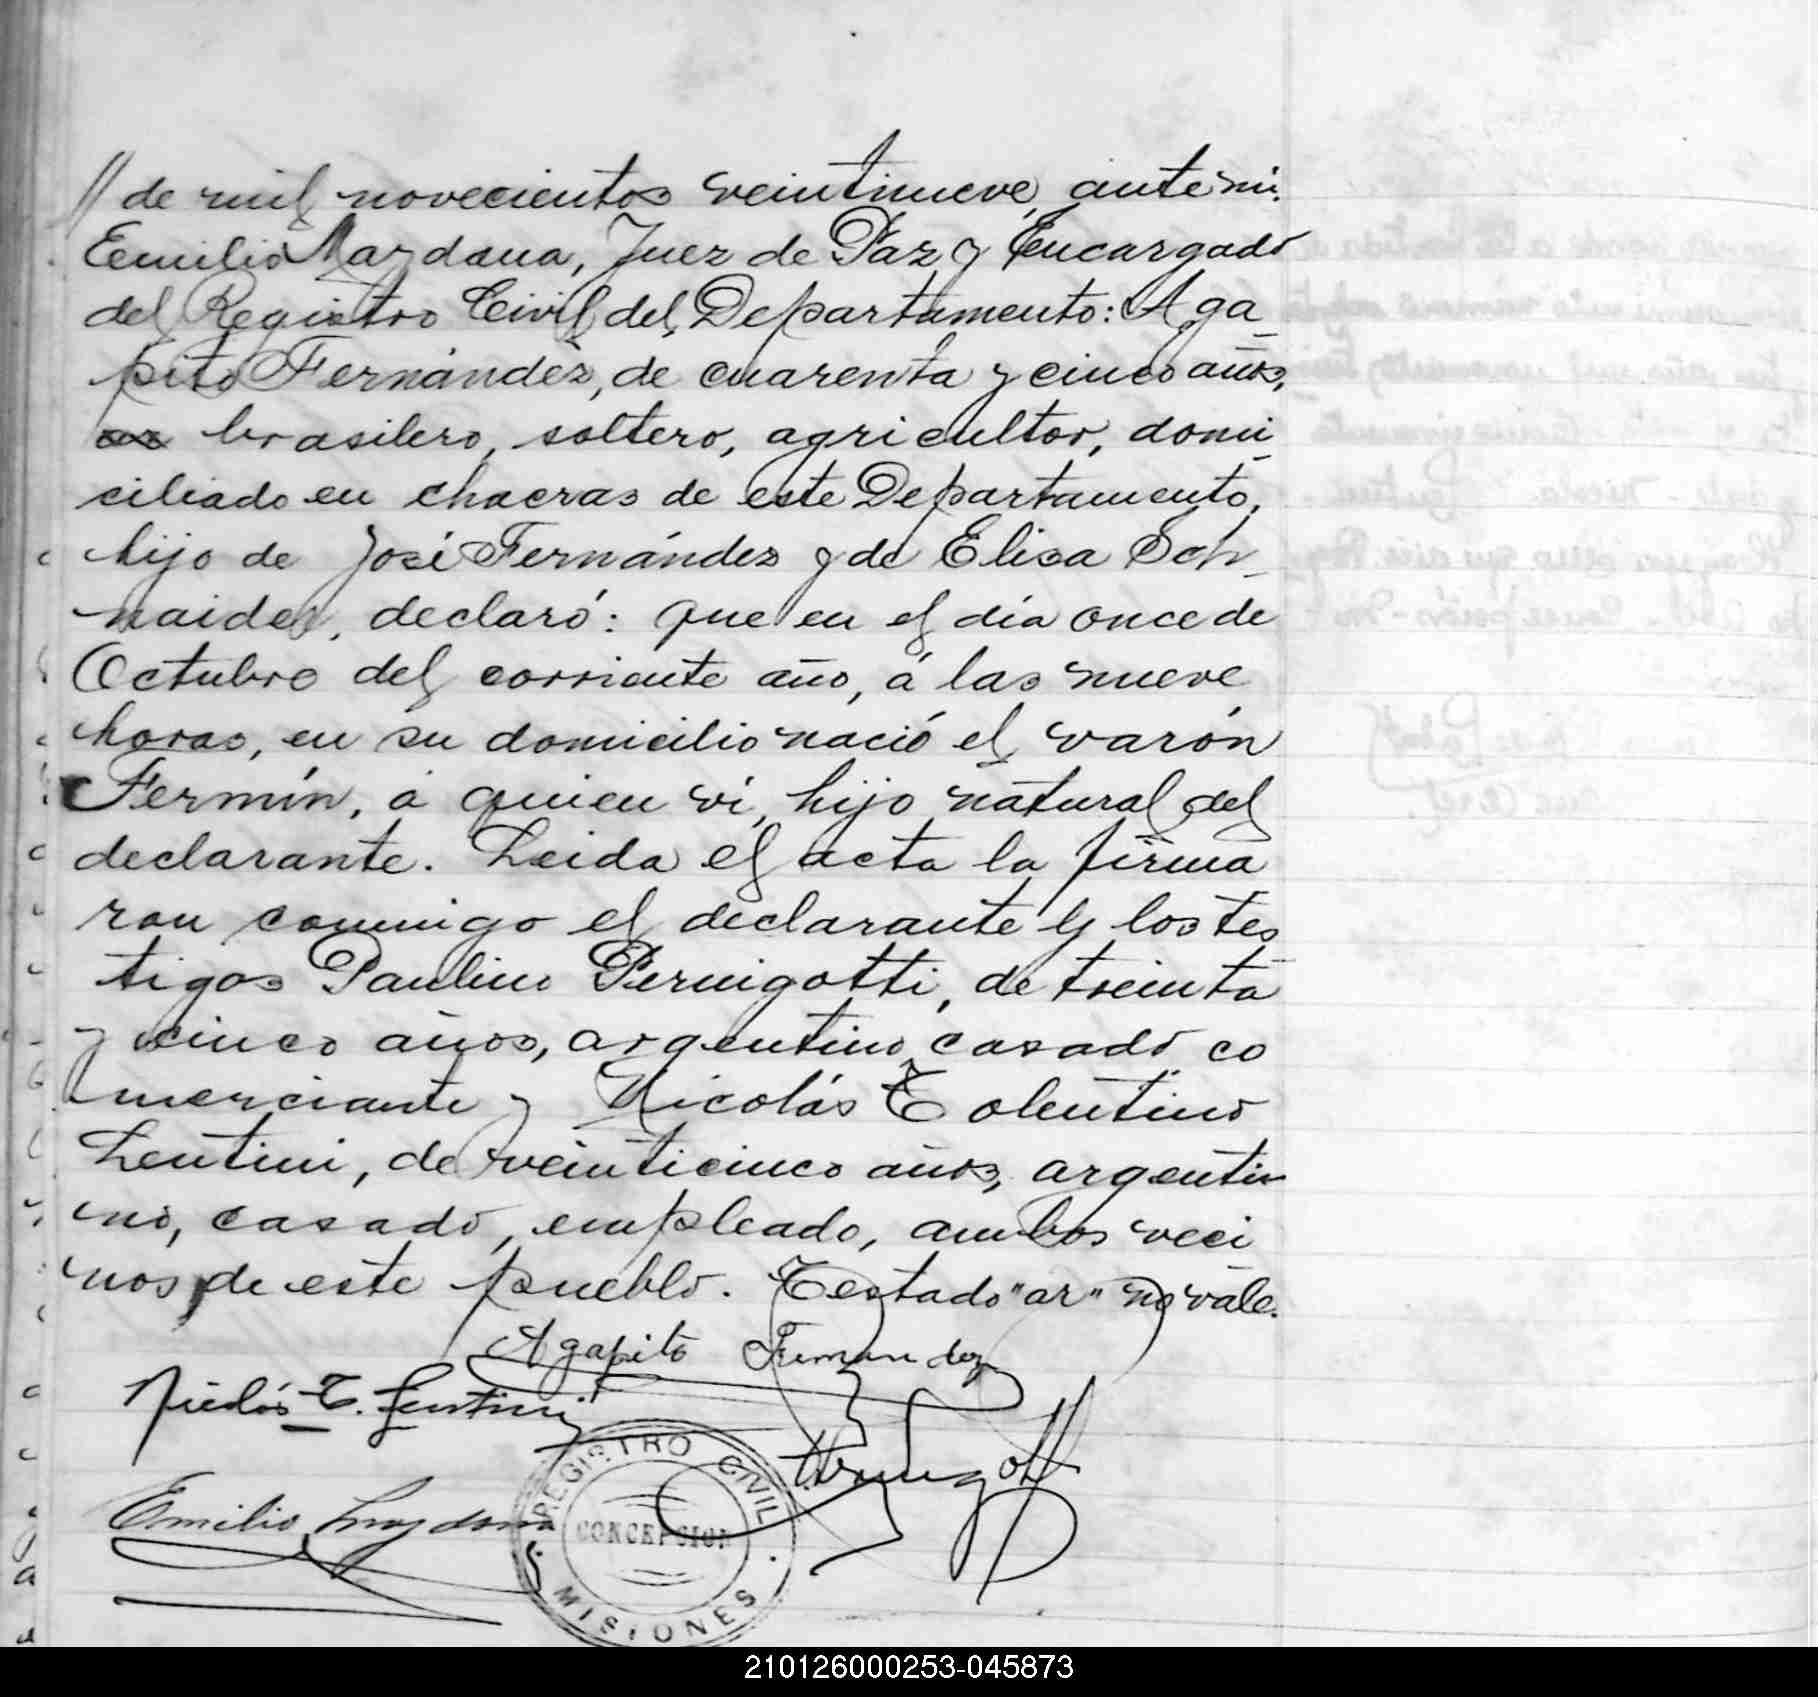 // de mil novecientos veintinueve, ante mi.
Emilio Mazdana, Juez de Paz y Encargado
del Registro Civil del Departamento: Aga_
pito Fernández, de cuarenta y cinco años,
ar brasilero, soltero, agricultor, domi_
ciliado en chacras de este Departamento,
hijo de José Fernández y de Elisa Sch_
naider, declaró: que en el día once de
Octubre del corriente año, á las nueve
horas, en su domicilio nació el varón
Fermín, á quien ví, hijo natural del
declarante. Leida el acta la firma
ron conmigo el declarante y los tes
tigos Paulino Pernigotti, de treinta
y cinco años, argentino, casado co
merciante y Nicolás Tolentino
Lentini, de veinticinco años, argenti
no, casado, empleado, ambos veci
nos de este pueblo. Testado "ar" no vale.
Agapito Fernandez
Nicolás T. Lentini
Pernigotti
Emilio Mazdana
REGISTRO CIVIL
CONCEPCION
MISIONES
210126000253-045873